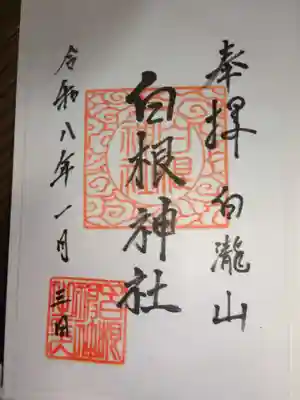 奉拝 白瀧山
白根神社
令和八年一月三日